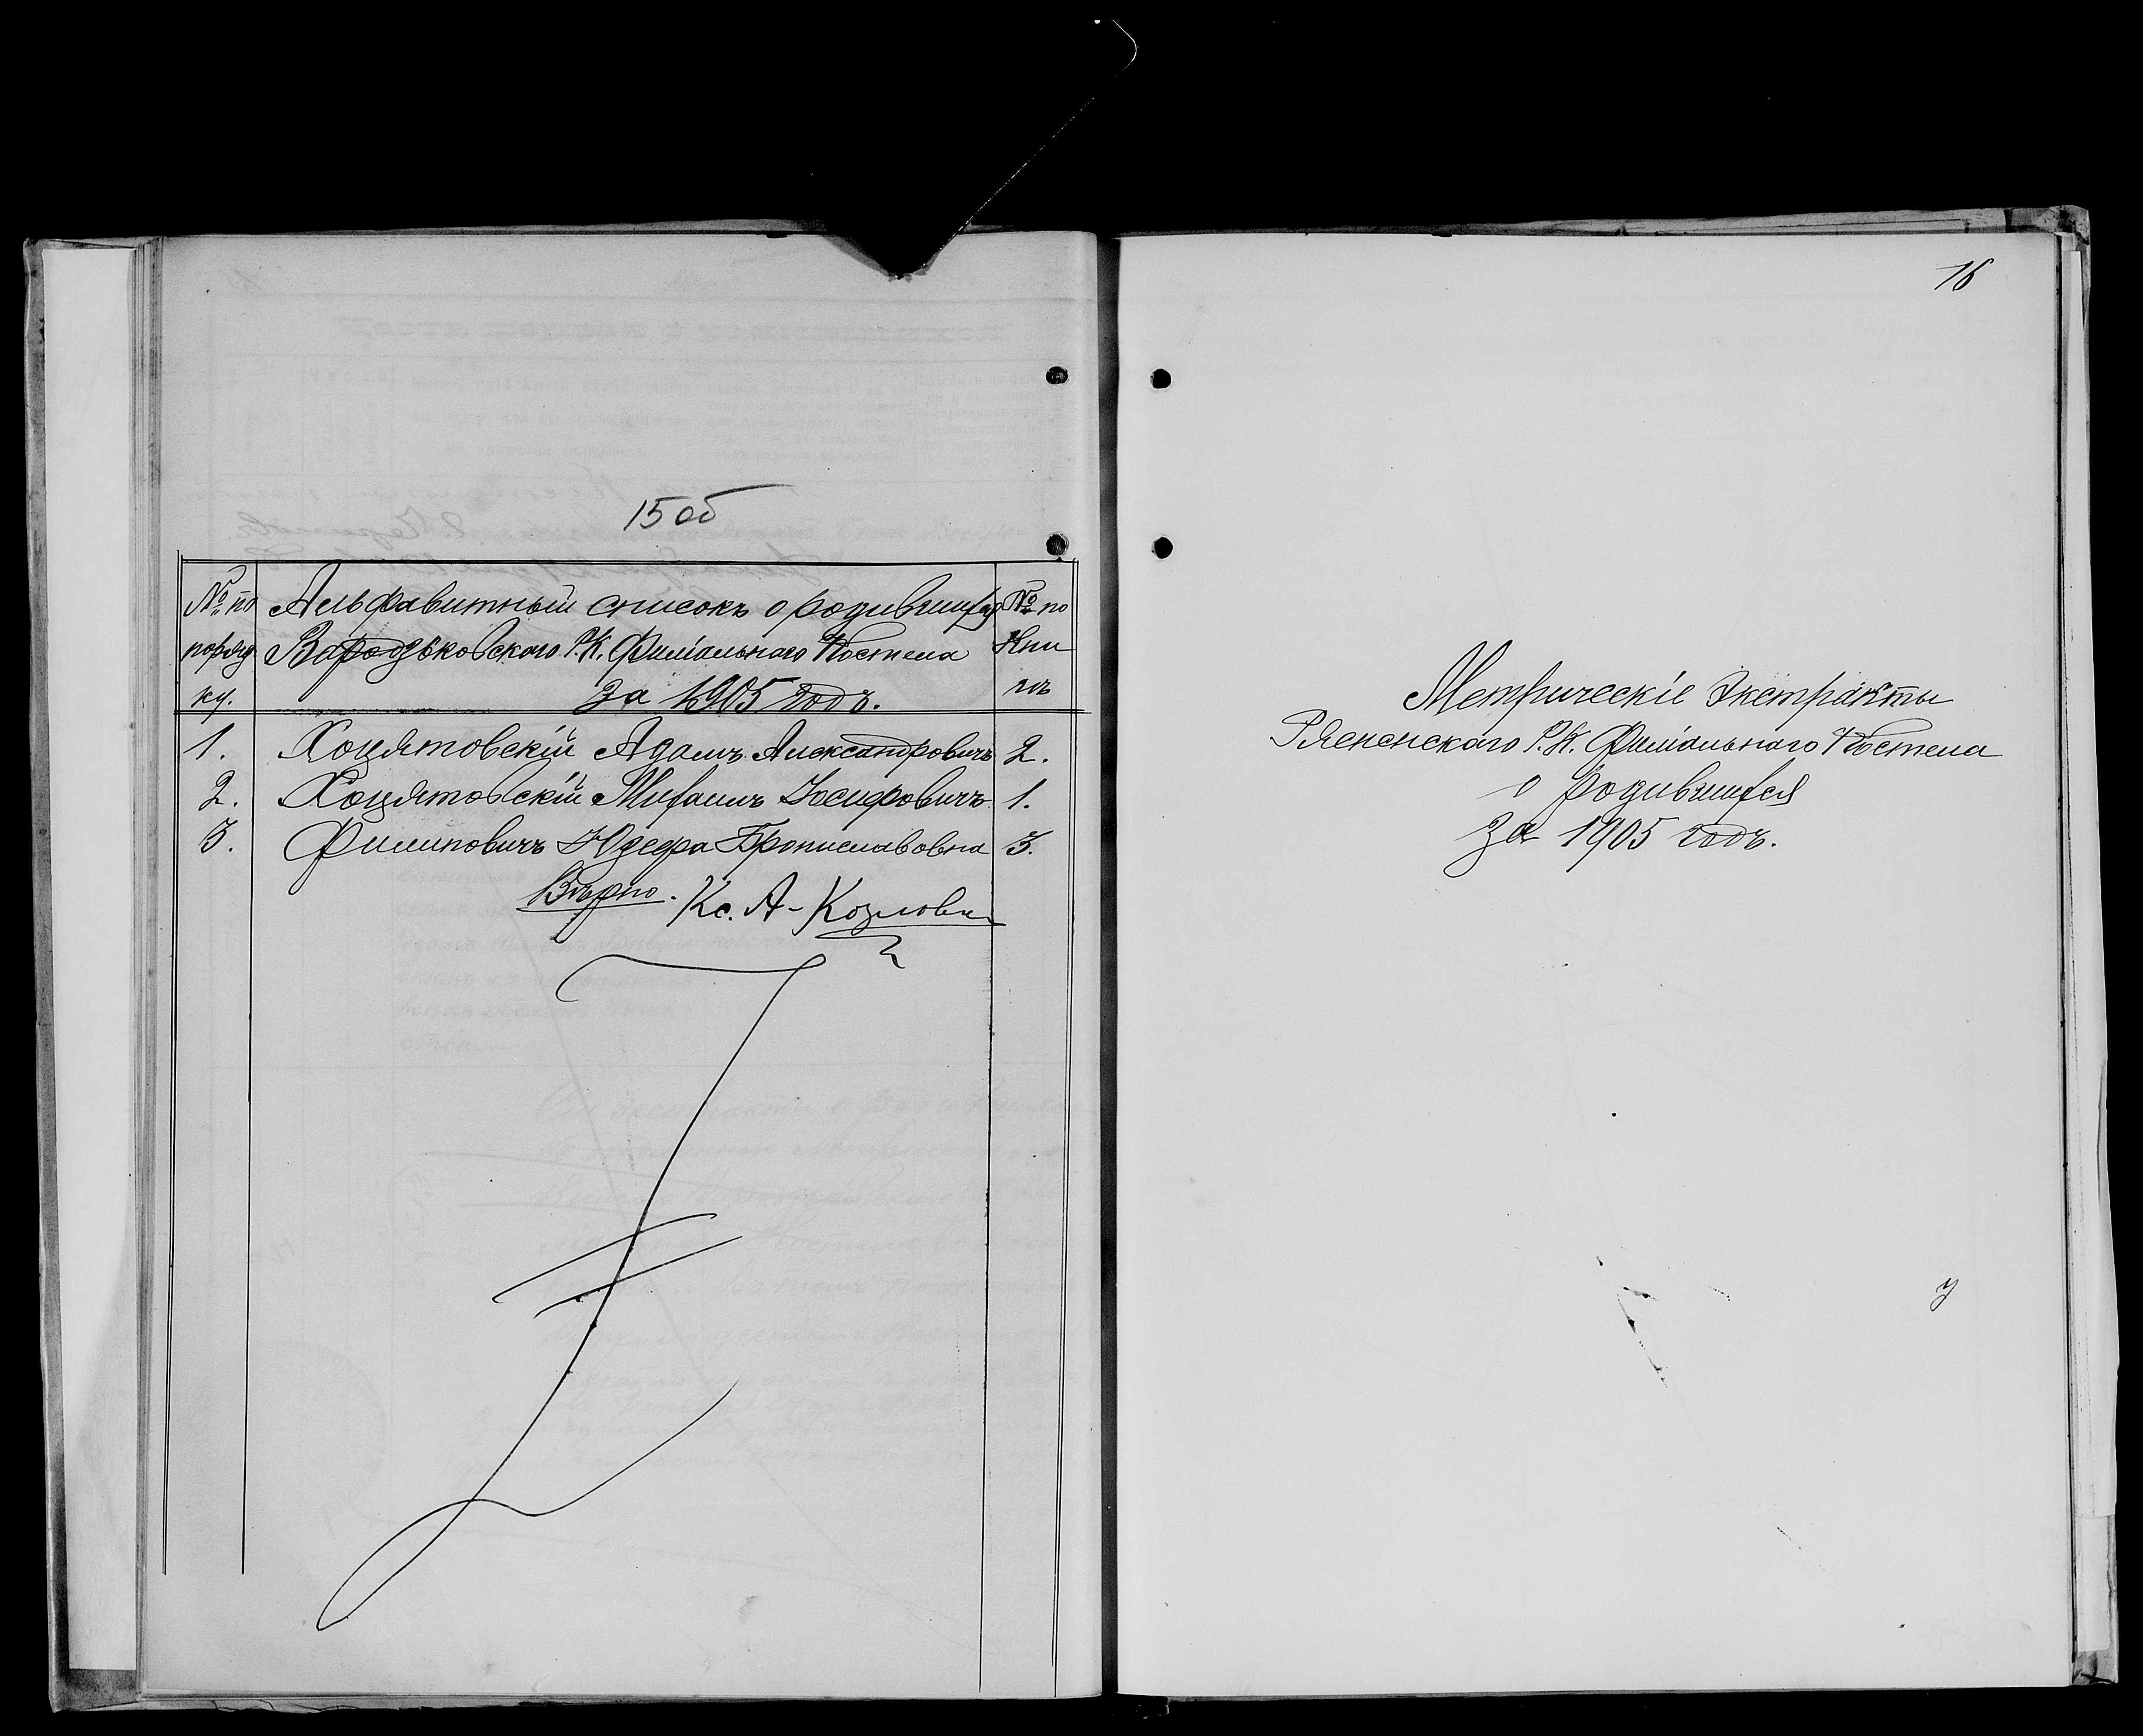 15 об
№ по Альфавитный списокъ о родившихся № по
поряд Вародзьковскаго Р. К. Филіальнаго Костела Кни
ку. за 1905 годъ. гѣ
1. Хоцятовскій Адамъ Александровичъ 2.
2. Хоцятовскій Михаилъ Іосифовичъ 1.
3. Филиповичъ Юзефа Брониславовна 3.
Вѣрно. Кс. А. Козловск
16
Метрическіе Экстракты
Рясненскаго Р. К. Филіальнаго Костела
о родившихся
за 1905 годъ.